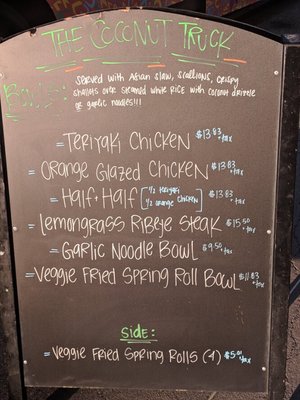 THE COCONUT TRUCK
BOWLS: SERVED WITH ASIAN SLAW, SCALLIONS, CRISPY
SHALLOTS OVER STEAMED WHITE RICE WITH COCONUT DRIZZLE
OR GARLIC NOODLES!!!
- TERIYAKI CHICKEN $13.83 +tax
- ORANGE GLAZED CHICKEN $13.83 +tax
- HALF + HALF [1/2 teriyaki $13.83 +tax
1/2 orange chicken]
- LEMONGRASS RIBEYE STEAK $15.50 +tax
- GARLIC NOODLE BOWL $9.50 +tax
- VEGGIE FRIED SPRING ROLL BOWL $11.83 +tax
SIDE:
- VEGGIE FRIED SPRING ROLLS (4) $5.01 +tax